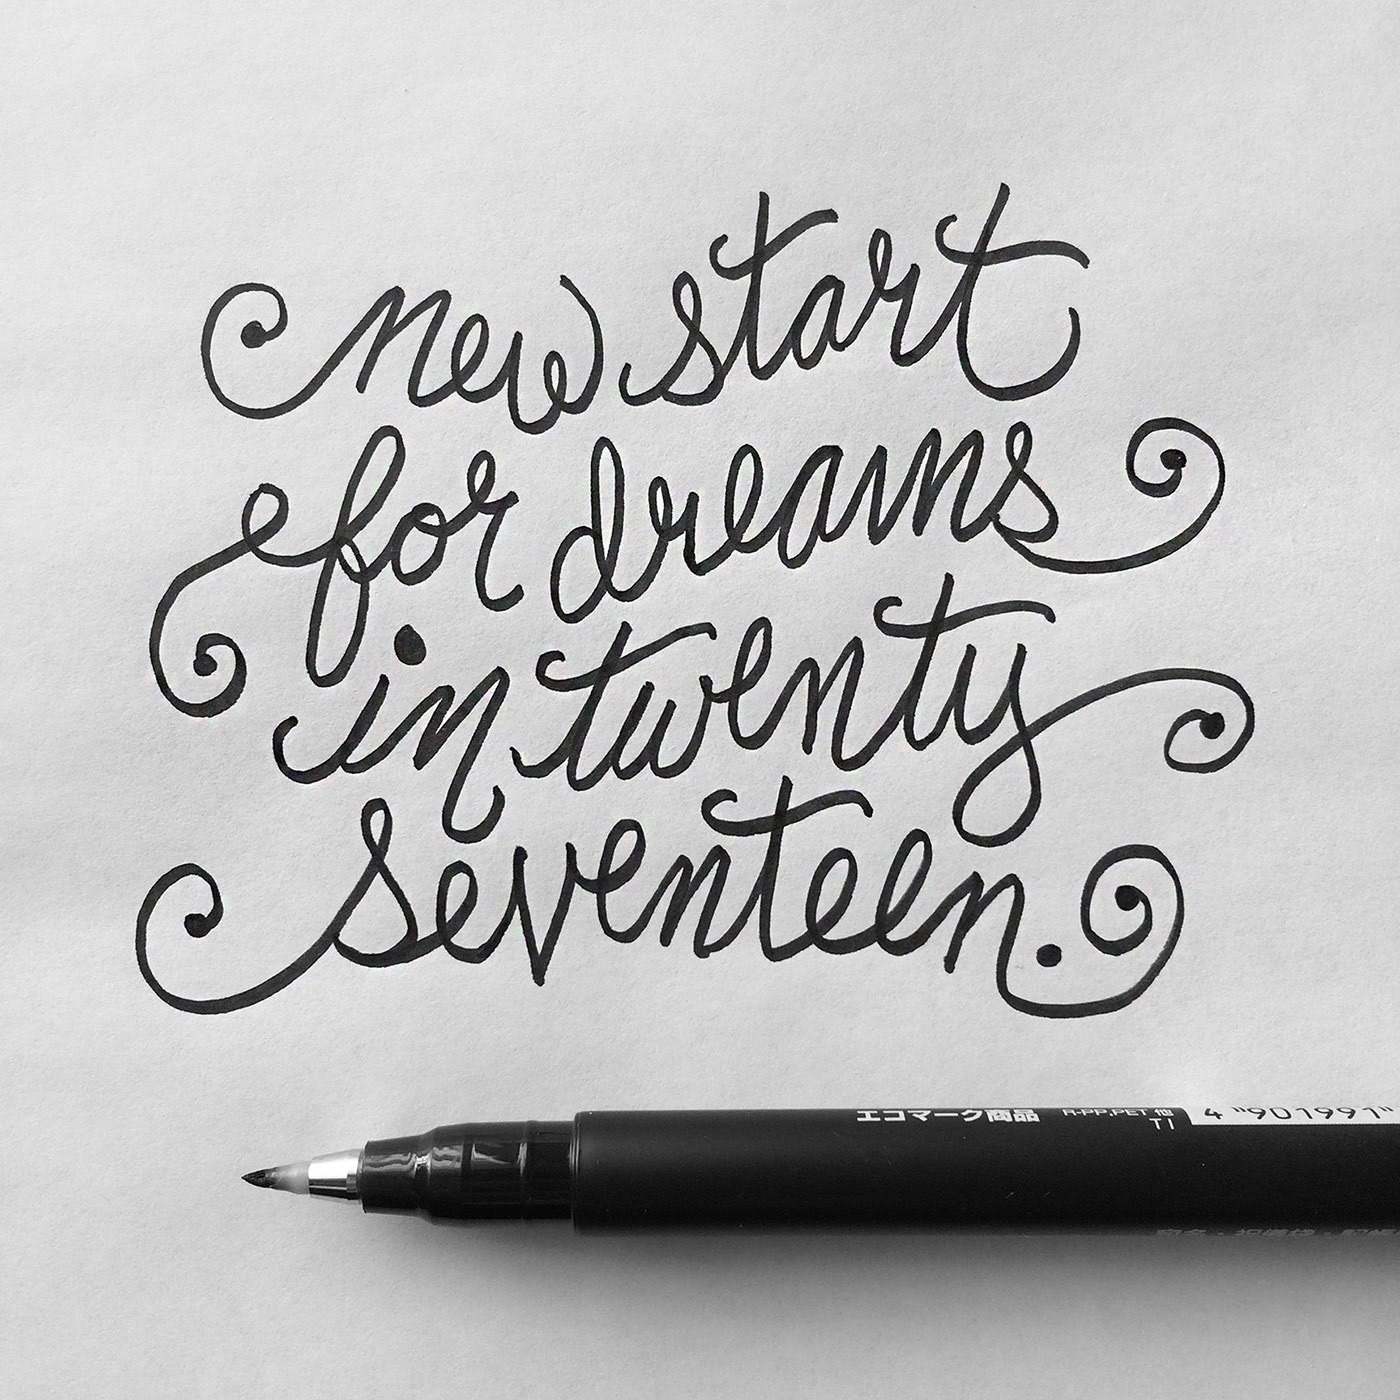 new start
for dreams
in twenty
seventeen.
エコマーク商品 R-PP,PET 他
TI
4 "901991"